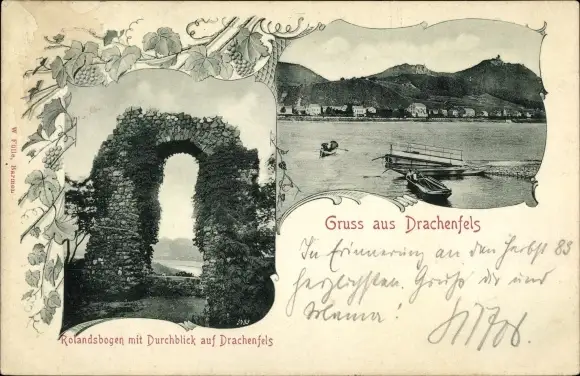 Gruss aus Drachenfels
In Erinnerung an den Herbst 83
herzlichsten Gruß dir und
Mama!
Rolandsbogen mit Durchblick auf Drachenfels
W. Fülle, Barmen